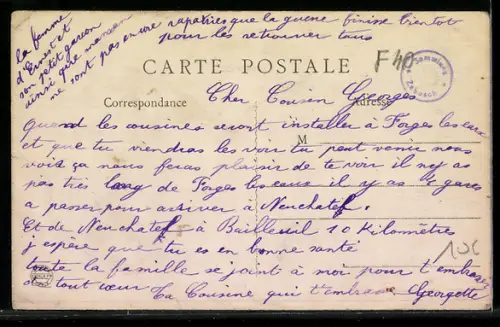 la femme
d'Ernest et
son petit garcon
ainsi que maman
ne sont pas encore rapatriés que la guerre finisse bientot
pour les retrouver tous
F 40
CARTE POSTALE
Correspondance
Adresse
M
Cher Cousin Georges
Quand les cousines seront installer à Forges les eaux
et que tu viendras les voir tu peut venir nous
voir ça nous feras plaisir de te voir il n'y as
pas très long de Forges les eaux il y as 4 gares
a passer pour arriver à Neuchatel.
Et de Neuchatel à Bailleuil 10 Kilomètres
j'espère que tu es en bonne santé
toute la famille se joint à moi pour t'embrasser
de tout cœur
Ta Cousine qui t'embrasse Georgette